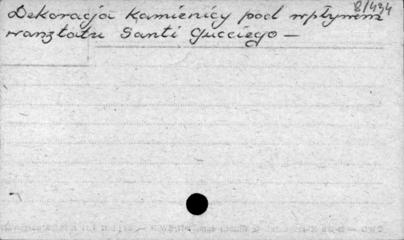 8/434
Dekoracja kamienicy pod wpływem
warsztatu Santi Gucciego —